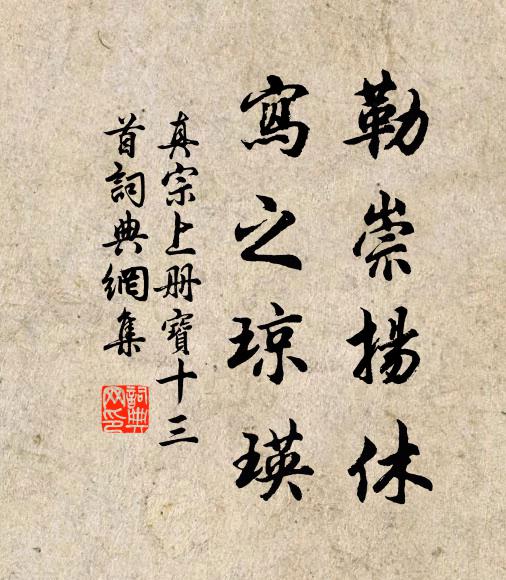 勒崇揚休
寫之琼瑛
真宗上册寶十三
首詞典網集
詞典网印